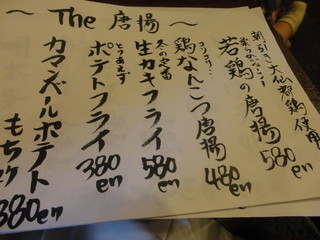 ～ The 唐揚 ～
朝引き大山都鶏使用
若鶏の唐揚 580en
コリコリ…
鶏なんこつ唐揚 480en
冬の定番
生カキフライ 580en
とりあえず
ポテトフライ 380en
カマンベールポテト
もちもち 380en